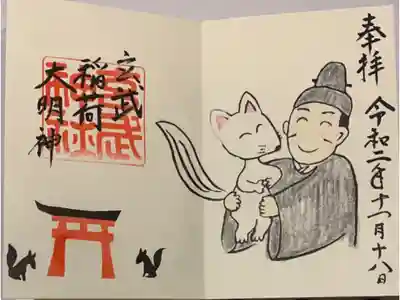 奉拝
令和二年十一月十八日
玄武
稲荷
大明神